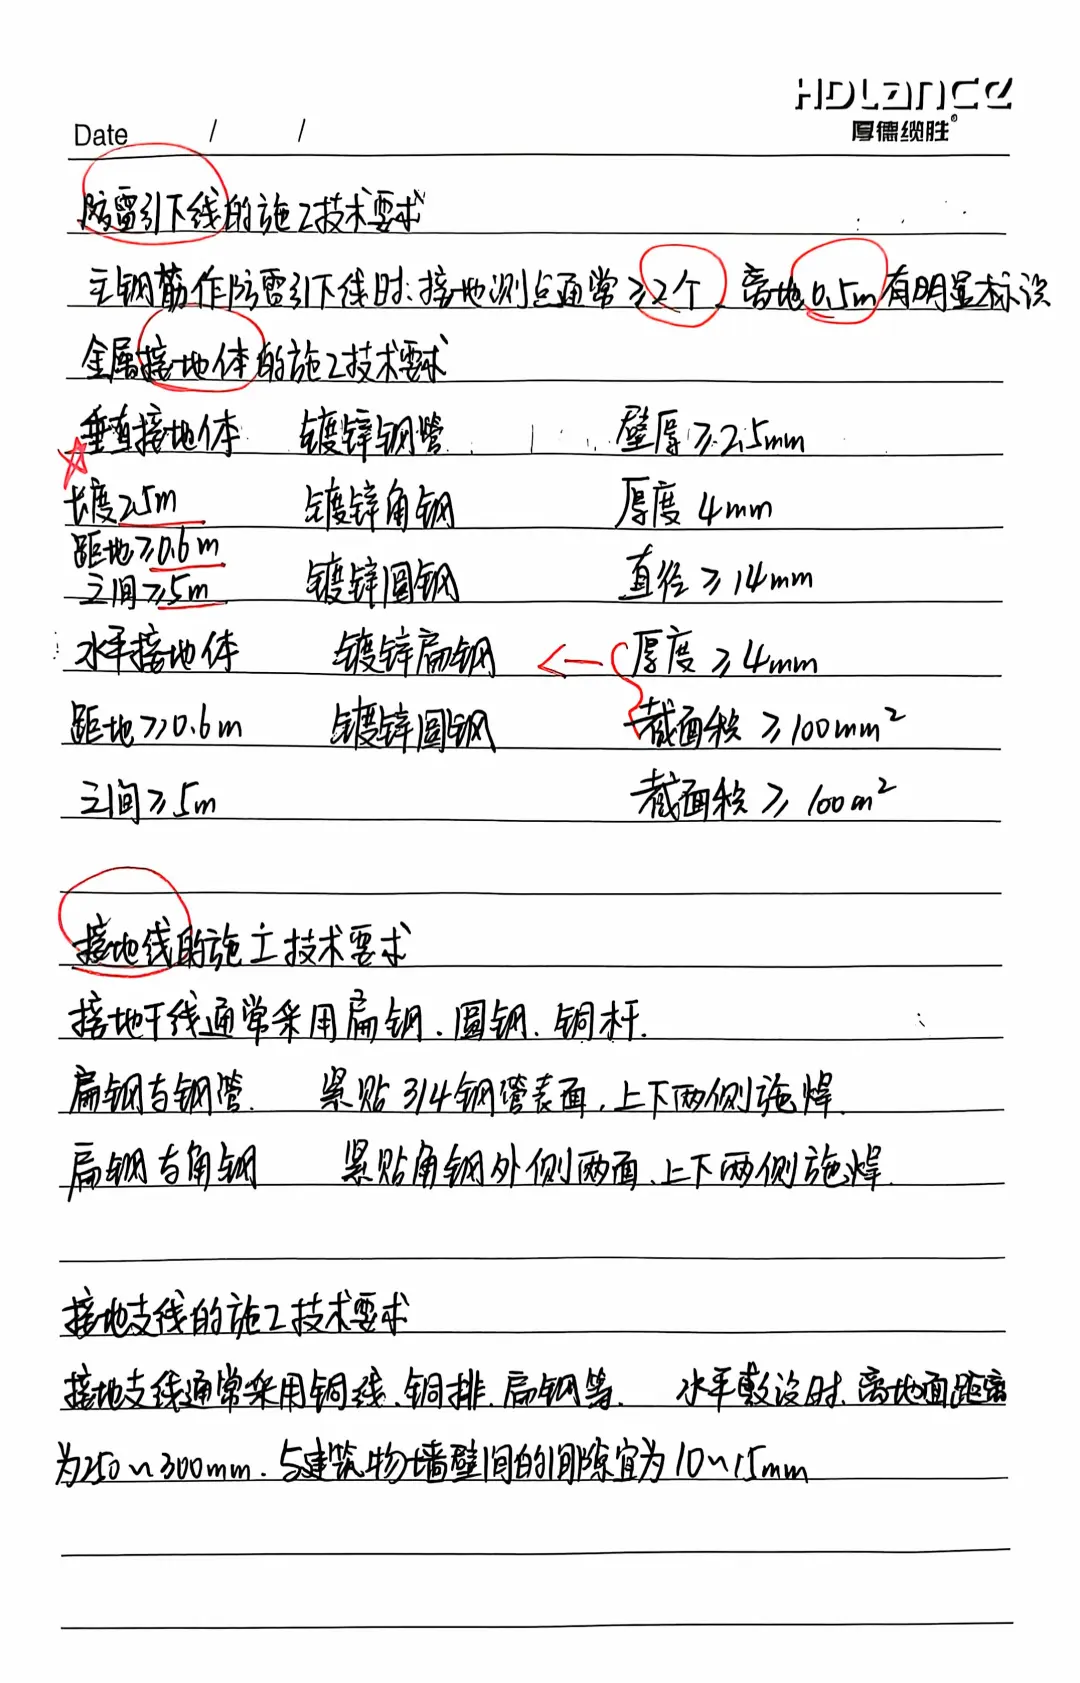 HOLANCE
厚德缆胜®
Date / /
防雷引下线的施工技术要求
主钢筋作防雷引下线时:接地测点通常≥2个、离地0.5m有明显标识
金属接地体的施工技术要求
垂直接地体 镀锌钢管 壁厚≥2.5mm
长度2.5m 镀锌角钢 厚度4mm
距地≥0.6m
之间≥5m 镀锌圆钢 直径≥14mm
水平接地体 镀锌扁钢 ← 厚度≥4mm
距地≥0.6m 镀锌圆钢 截面积≥100mm²
之间≥5m 截面积≥100m²
接地线的施工技术要求
接地干线通常采用扁钢、圆钢、铜杆.
扁钢与钢管. 紧贴3/4钢管表面,上下两侧施焊.
扁钢与角钢 紧贴角钢外侧两面、上下两侧施焊.
接地支线的施工技术要求
接地支线通常采用铜线、铜排、扁钢等. 水平敷设时、离地面距离
为250~300mm.与建筑物墙壁间的间隙宜为10~15mm